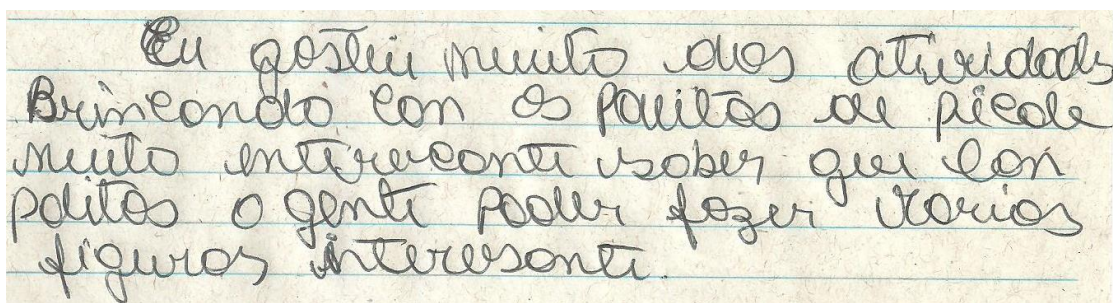 Eu gostei muito das atividads
Brincando con os palitos de picole
muito enterecante saber que con
politos a gente poder fazer varias
figuras interesante.